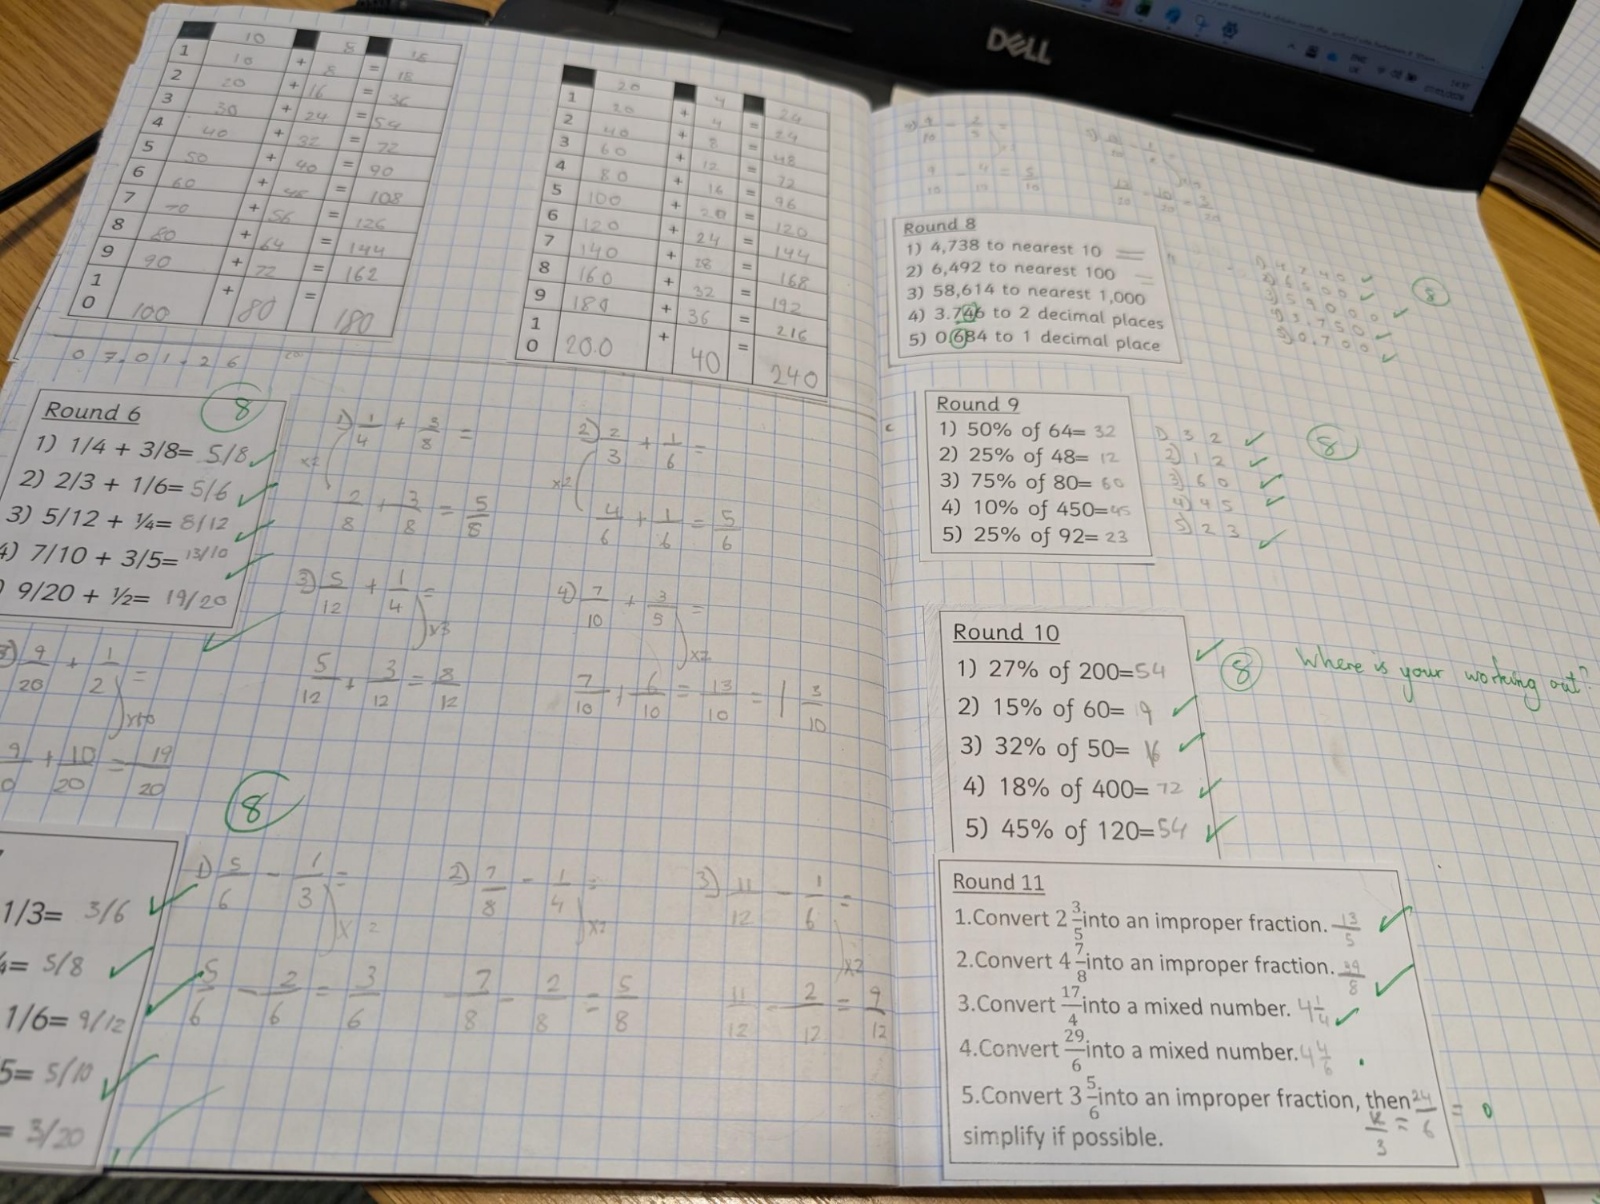 DELL
10 8 18
1 10 + 8 = 18
2 20 + 16 = 36
3 30 + 24 = 54
4 40 + 32 = 72
5 50 + 40 = 90
6 60 + 48 = 108
7 70 + 56 = 126
8 80 + 64 = 144
9 90 + 72 = 162
10 100 + 80 = 180
20 4 24
1 20 + 4 = 24
2 40 + 8 = 48
3 60 + 12 = 72
4 80 + 16 = 96
5 100 + 20 = 120
6 120 + 24 = 144
7 140 + 28 = 168
8 160 + 32 = 192
9 180 + 36 = 216
10 200 + 40 = 240
07.01.26
Round 6
8
1) 1/4 + 3/8= 5/8
2) 2/3 + 1/6= 5/6
3) 5/12 + ¼= 8/12
4) 7/10 + 3/5= 13/10
) 9/20 + ½= 19/20
1) 1/4 + 3/8 =
x2
2/8 + 3/8 = 5/8
2) 2/3 + 1/6 =
x2
4/6 + 1/6 = 5/6
3) 5/12 + 1/4 =
x3
5/12 + 3/12 = 8/12
4) 7/10 + 3/5 =
x2
7/10 + 6/10 = 13/10 = 1 3/10
5) 9/20 + 1/2 =
x10
9/0 + 10/20 = 19/20
8
1/3= 3/6
= 5/8
1/6= 9/12
5= 5/10
= 3/20
1) 5/6 - 1/3 =
x2
5/6 - 2/6 = 3/6
2) 7/8 - 1/4 =
x2
7/8 - 2/8 = 5/8
3) 11/12 - 1/6 =
x2
11/12 - 2/12 = 9/12
9/10 - 4/10 = 5/10
Round 8
1) 4,738 to nearest 10
2) 6,492 to nearest 100
3) 58,614 to nearest 1,000
4) 3.746 to 2 decimal places
5) 0.684 to 1 decimal place
1) 4740
2) 6500
3) 59000
4) 3.750
5) 0.700
8
Round 9
1) 50% of 64= 32
2) 25% of 48= 12
3) 75% of 80= 60
4) 10% of 450=45
5) 25% of 92= 23
1) 32
2) 12
3) 60
4) 45
5) 23
8
Round 10
1) 27% of 200=54
2) 15% of 60= 9
3) 32% of 50= 16
4) 18% of 400= 72
5) 45% of 120=54
8
Where is your working out?
Round 11
1.Convert 2 3/5 into an improper fraction. 13/5
2.Convert 4 7/8 into an improper fraction. 39/8
3.Convert 17/4 into a mixed number. 4 1/4
4.Convert 29/6 into a mixed number. 4 4/6
5.Convert 3 5/6 into an improper fraction, then 24/6 =
simplify if possible.